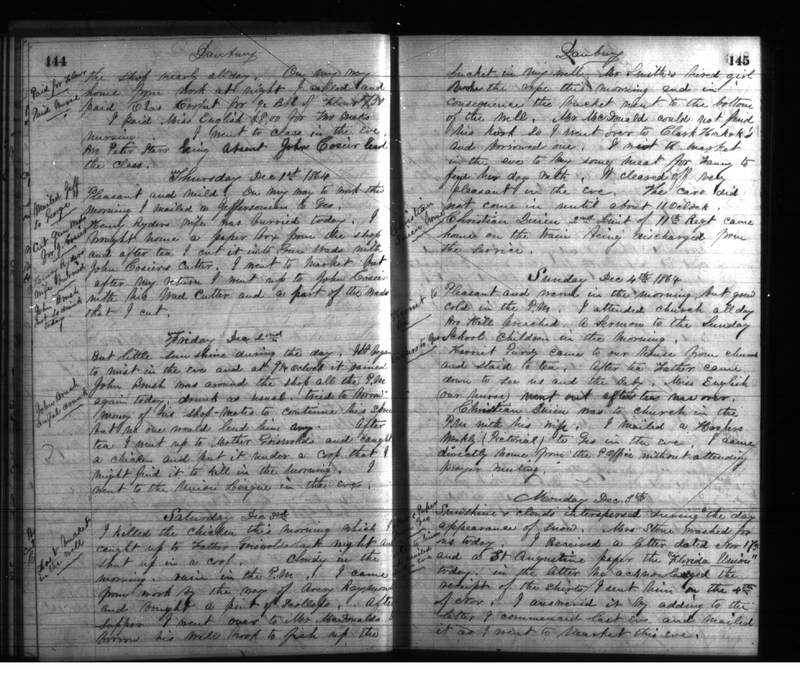 144
Danbury
the shop nearly all day. On my way
home from work at night I called and
paid Chas for Bbl of Flour
I paid Miss English $8.00 for two weeks
nursing. I went to class in the Eve.
Bro Peter Starr being absent John Cosier lead
the class.
Thursday Dec 1st 1864
Pleasant and mild. On my way to work this
morning I mailed a Jeffersonian to Geo.
Henry Ryders wife was burried today. I
brought home a paper box from the shop
and after tea I cut it into wads with
John Cosiers Cutter. I went to Market but
after my return I went up to John Cosier
with his Wad Cutter and a part of the wads
that I cut.
Friday Dec 2nd
But little sunshine during the day. It began
to mist in the eve and at 9½ oclock it rained
John Brush was around the shop all the P.M
again today, drunk as usual. tried to borrow
money of his Shop-Mates to continue his
but no one would lend him any. After
tea I went up to Mother Griswolds and caught
a chicken and put it under a coop that I
might find it to kill in the morning. I
went to the Union League in the eve.
Saturday Dec 3rd
I killed the chicken this morning which I
caught up to Father Griswolds last night and
shut up in a coop. Cloudy in the
morning. rain in the P.M. I came
from work by the way of Avery Raymond
and bought a pint of Scallops. After
Supper I went over to Mr MacDonalds
borrow his well hook to fish up the
Paid for Flour
Paid nurse
Mailed Jeff
to Geo
John Brush
drunk
today
John Brush
drunk
Lost bucket
in the well
145
Danbury
bucket in my well. Mr Smith's hired girl
broke the rope this morning and in
consequence the bucket went to the bottom
of the well. Mr McDonald could not find
his hook so I went over to Clark
and borrowed one. I went to market
in the eve to buy some meat for Fanny to
find her day with. It cleared off very
pleasant in the eve. The cars did
not come in until about 11 Oclock.
Christian Quien 2nd Lieut of 11th Regt came
home on the train being discharged from
the service.
Sunday Dec 4th 1864
Pleasant and warm in the morning, but grew
cold in the P.M. I attended church all day
Bro Hill preached a Sermon to the Sunday
School Children in the morning.
Harriet Purdy came to our house from church
and staid to tea. After tea Father came
down to see us and the baby. Miss English
(our nurse) went out after tea was over.
Christian Quien was to church in the
P.M. with his wife. I mailed a Harpers
Weekly (Pictorial) to Geo in the eve. I came
directly home from the P. Office without attending
prayer meeting.
Monday Dec. 5th
Sunshine & clouds interspersed during the day
appearance of snow. Mrs Stone washed for
us today. I Received a letter dated Nov 17th
and a St Augustine paper the "Florida Union"
today. in the letter he acknowledged the
receipt of the shirts I sent him on the 4th
of Nov. I answered it by adding to the
letter I commenced last eve and mailed
it as I went to Market this Eve.
Christian
Quien home
Harriet to
tea